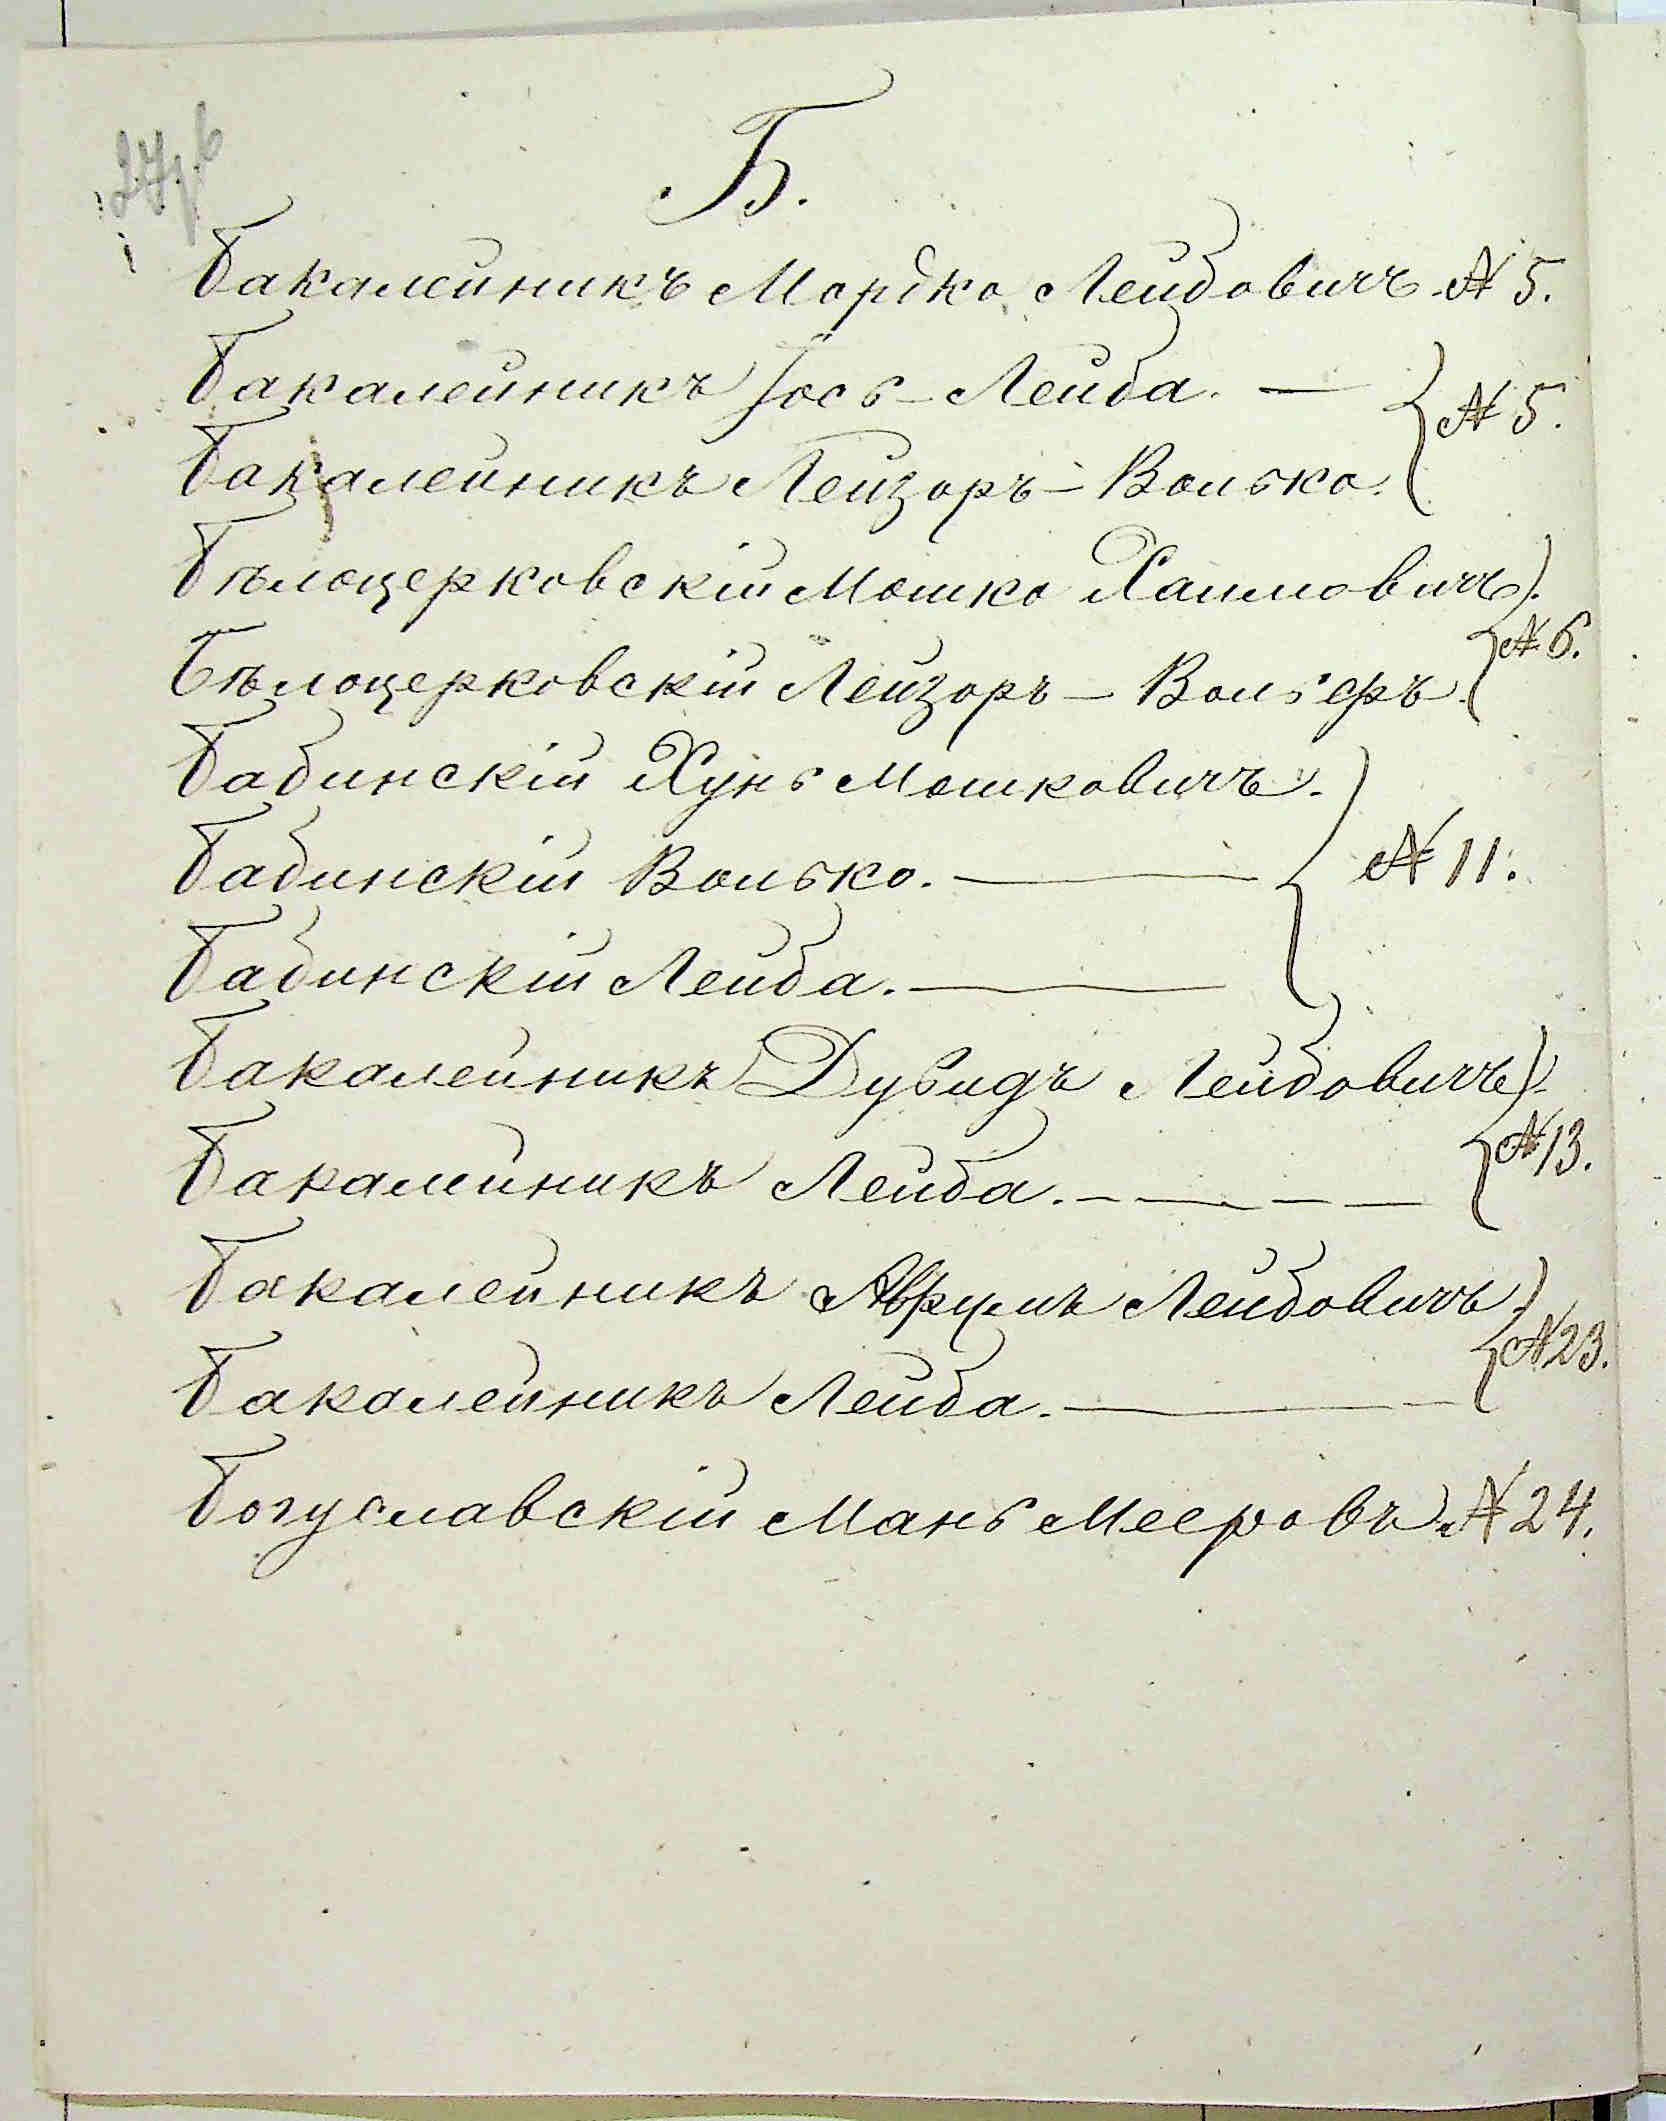 Б.
Бакалейникъ Мордко Лейбовичъ № 5.
Бакалейникъ Іось-Лейба. — № 5.
Бакалейникъ Лейзоръ-Волько.
Бѣлоцерковскій Мошко Хаимовичъ.
Бѣлоцерковскій Лейзоръ-Вольѳеръ. № 6.
Бабинскій Хунь Мошковичъ.
Бабинскій Волько. — № 11.
Бабинскій Лейба. —
Бакалейникъ Дувидъ Лейбовичъ.
Бакалейникъ Лейба. — — — № 13.
Бакалейникъ Аврумъ Лейбовичъ.
Бакалейникъ Лейба. — № 23.
Богуславскій Мань Мееровъ № 24.